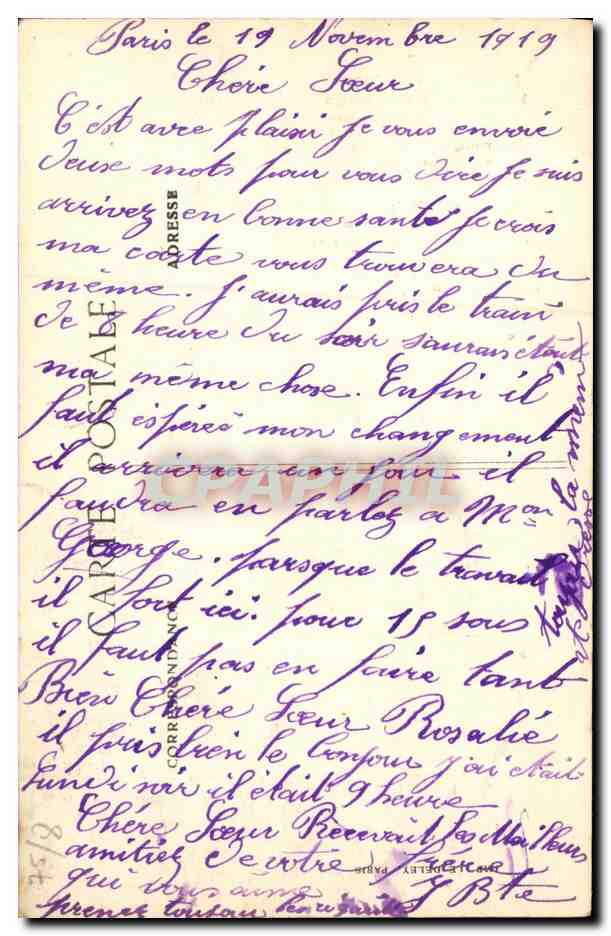 Paris le 19 Novembre 1919
Chére Sœur
C'est avec plaisir Je vous envoie
deux mots pour vous dire Je suis
arrivez en bonne santé Je crois
ma carte vous trouvera du
même. J'aurais pris le train
de 8 heure du soir saurais était
ma même chose. Enfin il
faut espéré mon changement
il arrivera un jour il
faudra en parlez a Mon
George. parsque le travail
il fort ici. pour 15 sous
il faut pas en faire tant
Bien Chéré Sœur Rosalié
il pris bien le bonjour j'ai était
Lundi soir il était 9 heure
Chére Sœur Recevait les Meilleurs
amitiez de votre frère
qui vous aime J Bte
prenez
la même
CARTE POSTALE
ADRESSE
CORRESPONDANCE
IMP. LE DELEY PARIS
75/8
CPAPHIL